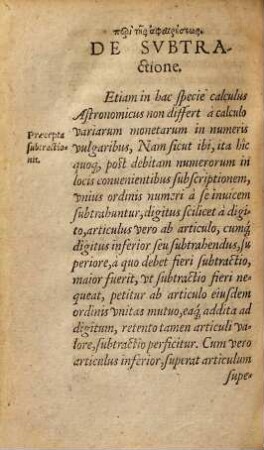 περὶ τῆς ἀφαιρέσεως.
DE SVBTRA-
ctione.
Etiam in hac specie calculus
Astronomicus non differt à calculo
Precepta
subtractio-
nis.
variarum monetarum in numeris
vulgaribus, Nam sicut ibi, ita hic
quoq́, post debitam numerorum in
locis conuenientibus subscriptionem,
vnius ordinis numeri à se inuicem
subtrahuntur, digitus scilicet à digi-
to, articulus vero ab articulo, cumq́
digitus inferior seu subtrahendus, su-
periore, a quo debet fieri subtractio,
maior fuerit, vt subtractio fieri ne-
queat, petitur ab articulo eiusdem
ordinis vnitas mutuo, eaq́ addita ad
digitum, retento tamen articuli va-
lore, subtractio perficitur. Cum vero
articulus inferior, superat articulum
supe-